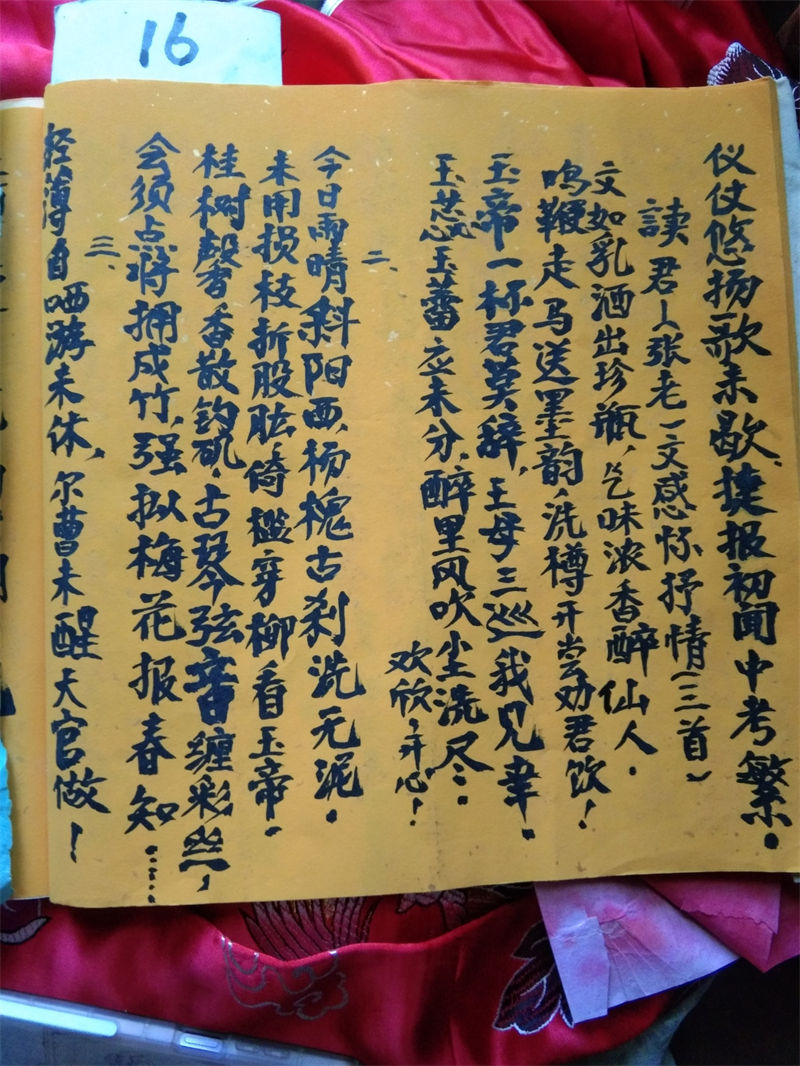 16
仪仗悠扬歌未歇,捷报初闻中考繁。
读君人张老一文感怀抒情(三首)
文如乳酒出珍瓶,气味浓香醉仙人。
鸣鞭走马送墨韵,洗樽开尝劝君饮!
玉帝一杯君莫辞,王母三巡我见幸。
玉蕊玉蕾应未分,醉里风吹尘洗尽:
欢欣,开心!
二、
今日雨晴斜阳西,杨槐古刹洗无泥。
未用损枝折股肱倚槛穿柳看玉帝。
桂树馨香散钓矶,古琴弦音缠彩丝,
会须点将捅成竹,强拟梅花报春知……
三、
轻薄自哂游未休,尔曹未醒大官做!